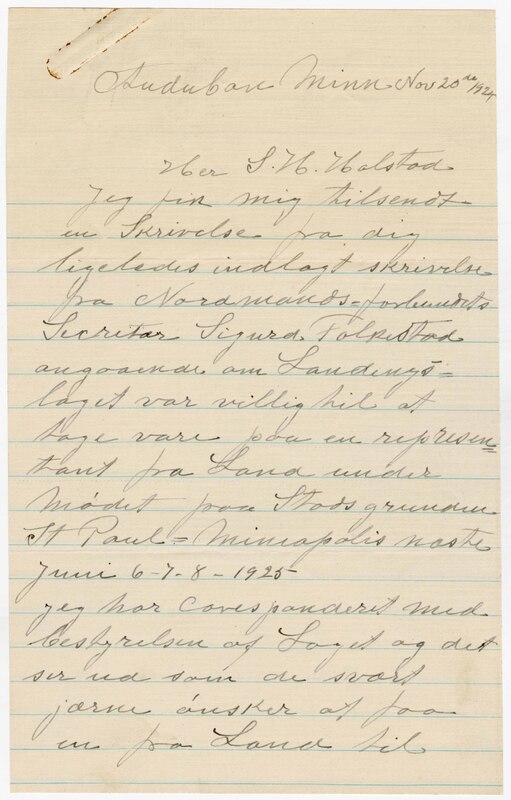 Audubon Minn Nov 20de 1924
Her S. H. Holstad
Jeg fik mig tilsendt
en Skrivelse fra dig
ligeledes indlagt skrivelse
fra Nordmands-forbundets
Secretær Sigurd Folkestad
angaaende om Landings-
laget var villig til at
tage vare paa en represen=
tant fra Land under
Mødet paa Stads grunden
St Paul = Mineapolis næste
Juni 6-7-8-1925
jeg har Corresponderet med
bestyrelsen af Laget og det
ser ud som de svært
jærne ønsker at faa
en fra Land til